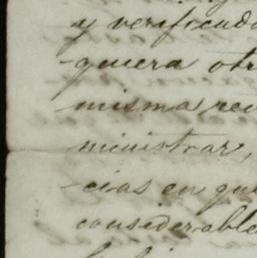 y verificad
quiera otr
misma rec
ministrar,
cias en qu
considerable